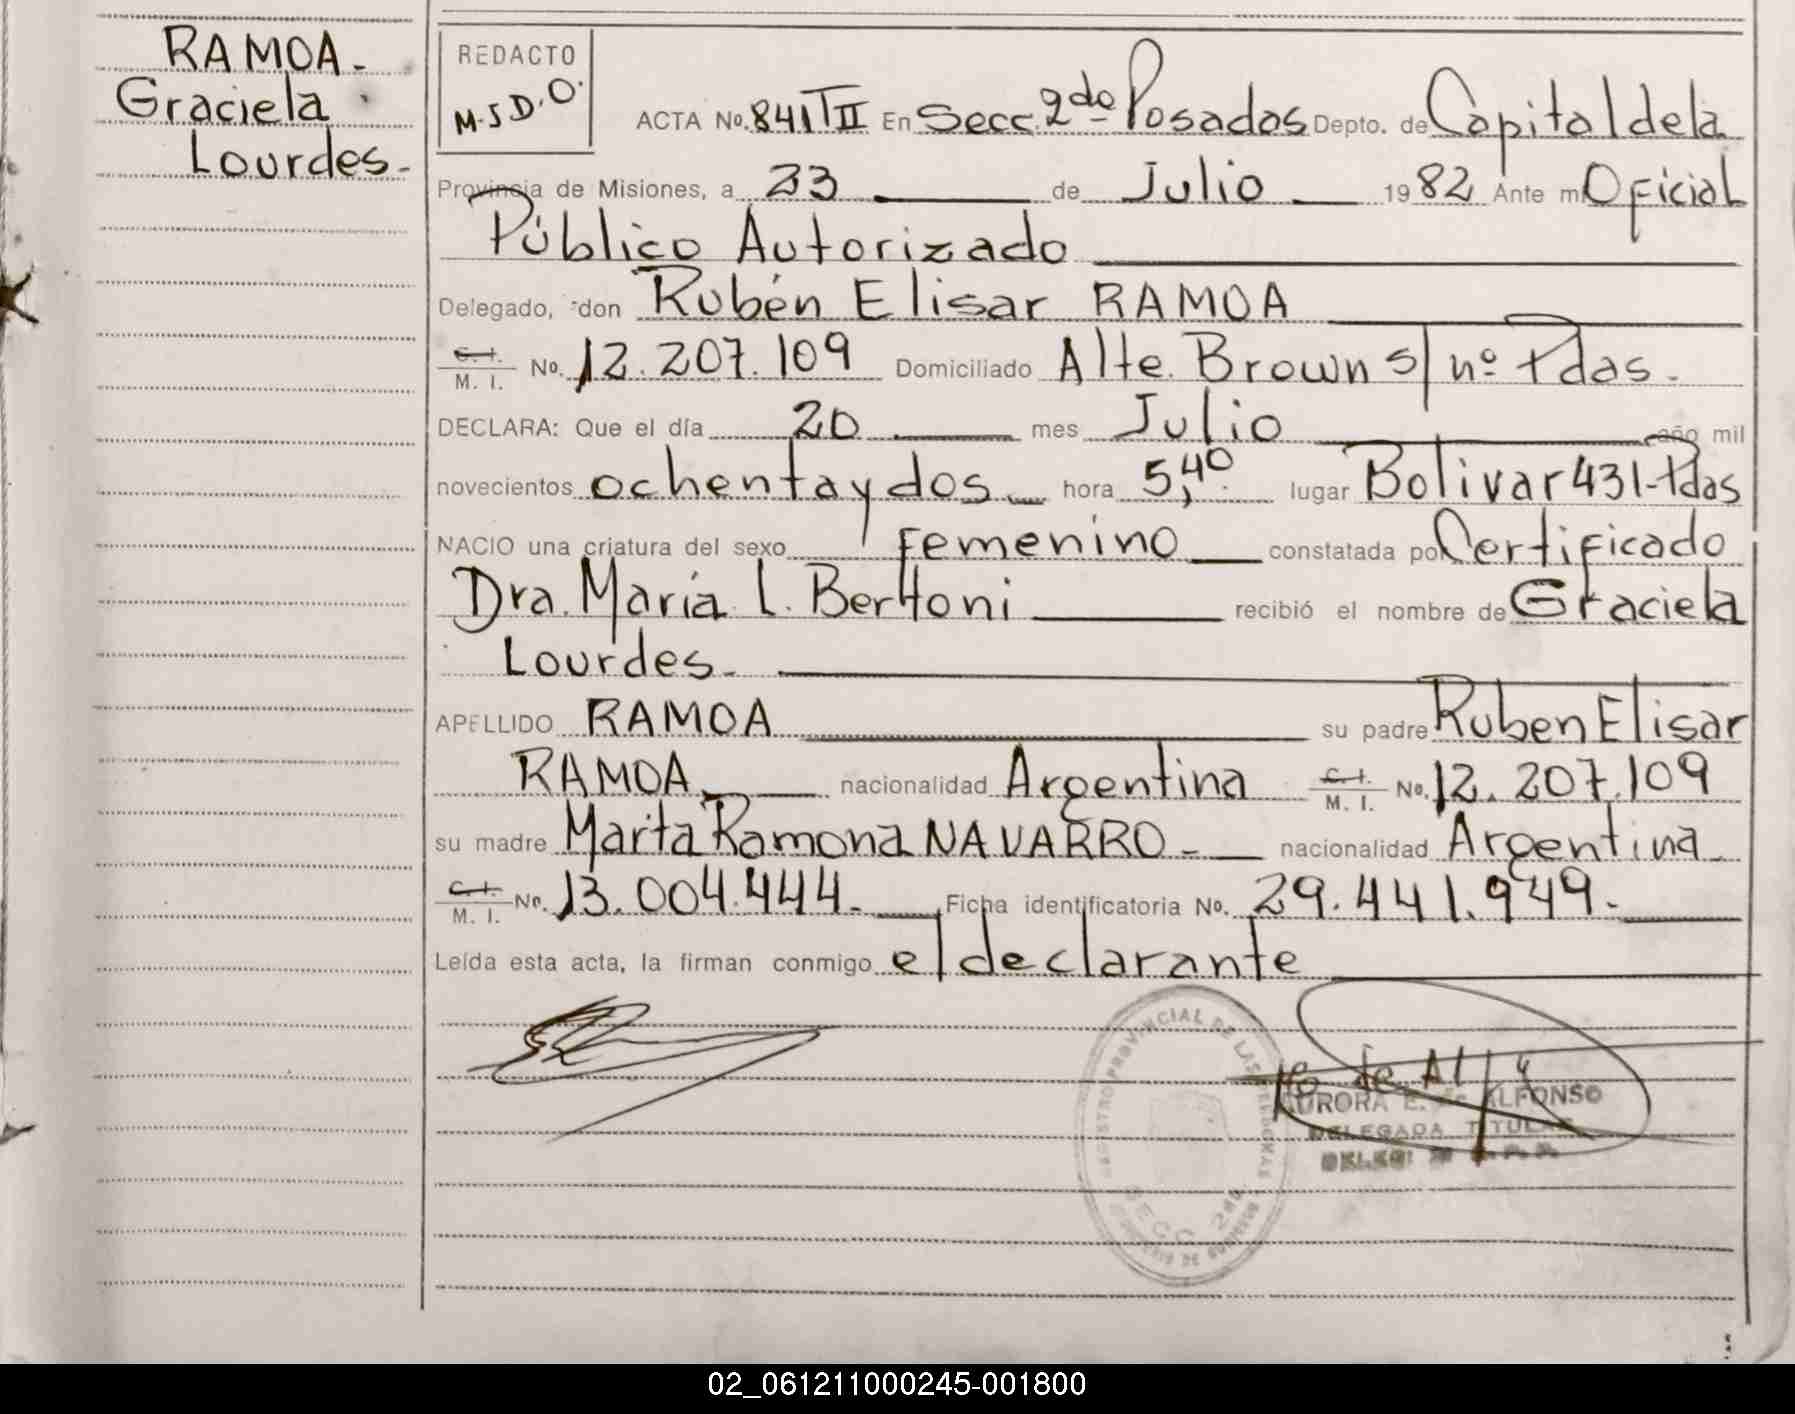 RAMOA.
Graciela
Lourdes.
REDACTO
M.S.D.O.
ACTA No. 841 TII En Secc. 2do Posadas Depto. de Capital de la
Provincia de Misiones, a 23 de Julio 1982 Ante mí Oficial
Público Autorizado
Delegado, don Rubén Elisar RAMOA
C. I. M. I. No. 12.207.109 Domiciliado Alte. Brown s/nº Pdas.
DECLARA: Que el día 20 mes Julio año mil
novecientos ochenta y dos hora 5,40. lugar Bolivar 431-Pdas
NACIO una criatura del sexo femenino constatada por Certificado
Dra. María L. Bertoni recibió el nombre de Graciela
Lourdes.
APELLIDO RAMOA su padre Ruben Elisar
RAMOA nacionalidad Argentina C. I. M. I. No. 12.207.109
su madre Marta Ramona NAVARRO - nacionalidad Argentina
C. I. M. I. No. 13.004.444. Ficha identificatoria No. 29.441.949.
Leída esta acta, la firman conmigo el declarante
REGISTRO PROVINCIAL DE LAS PERSONAS
SECC. 2da
AURORA E. de ALFONSO
DELEGADA TITULAR
02_061211000245-001800